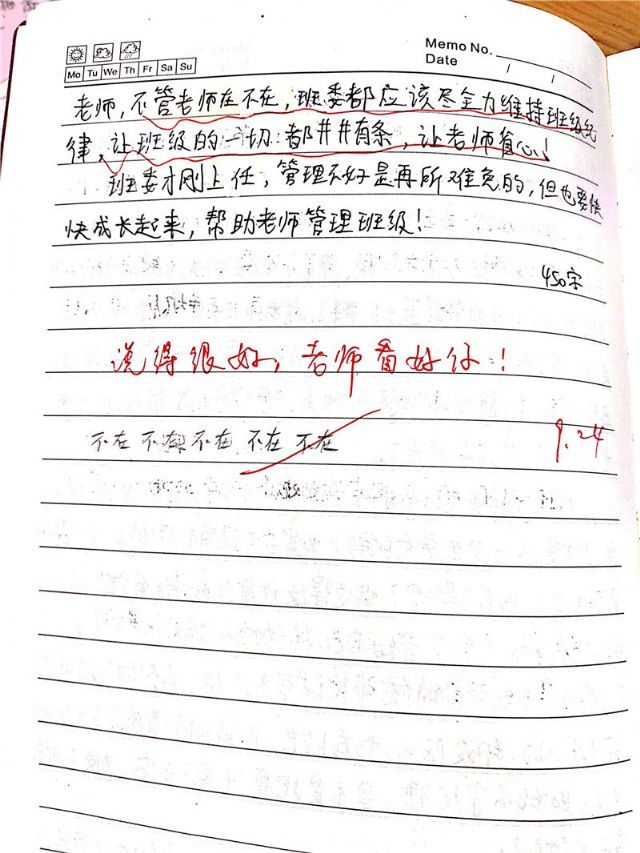 Memo No.
Mo Tu We Th Fr Sa Su
Date / /
老师,不管老师在不在,班委都应该尽全力维持班级纪
律,让班级的一切都井井有条,让老师省心!
班委才刚上任,管理不好是再所难免的,但也要快
快成长起来,帮助老师管理班级!
450字
说得很好,老师看好你!
不在 不在 不在 不在 不在
9.24